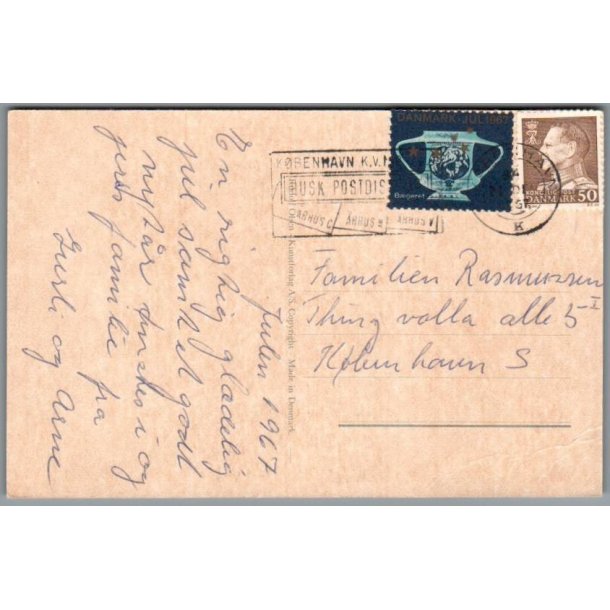 Julen 1967
En rigtig glædelig
jul samt et godt
nytår ønskes i og
jeres familie fra
Gurli og Arne
KØBENHAVN K.V.
HUSK POSTDIS
AARHUS C
ÅRHUS N
ÅRHUS V
DANMARK·JUL 1967
Bægeret
DANMARK 50
K
Familien Rasmussen
Thingvolla alle 5 I
København S
Olsen Kunstforlag A/S. Copyright. Made in Denmark.